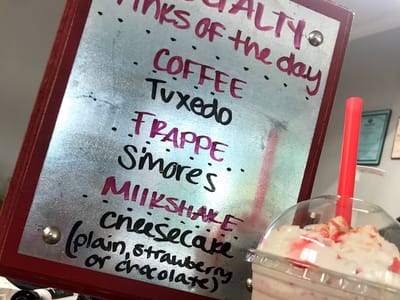 SPECIALTY
DRINKS OF THE day
COFFEE
Tuxedo
FRAPPE
S'mores
MIlKSHAKE
cheesecake
(plain, strawberry
or chocolate)